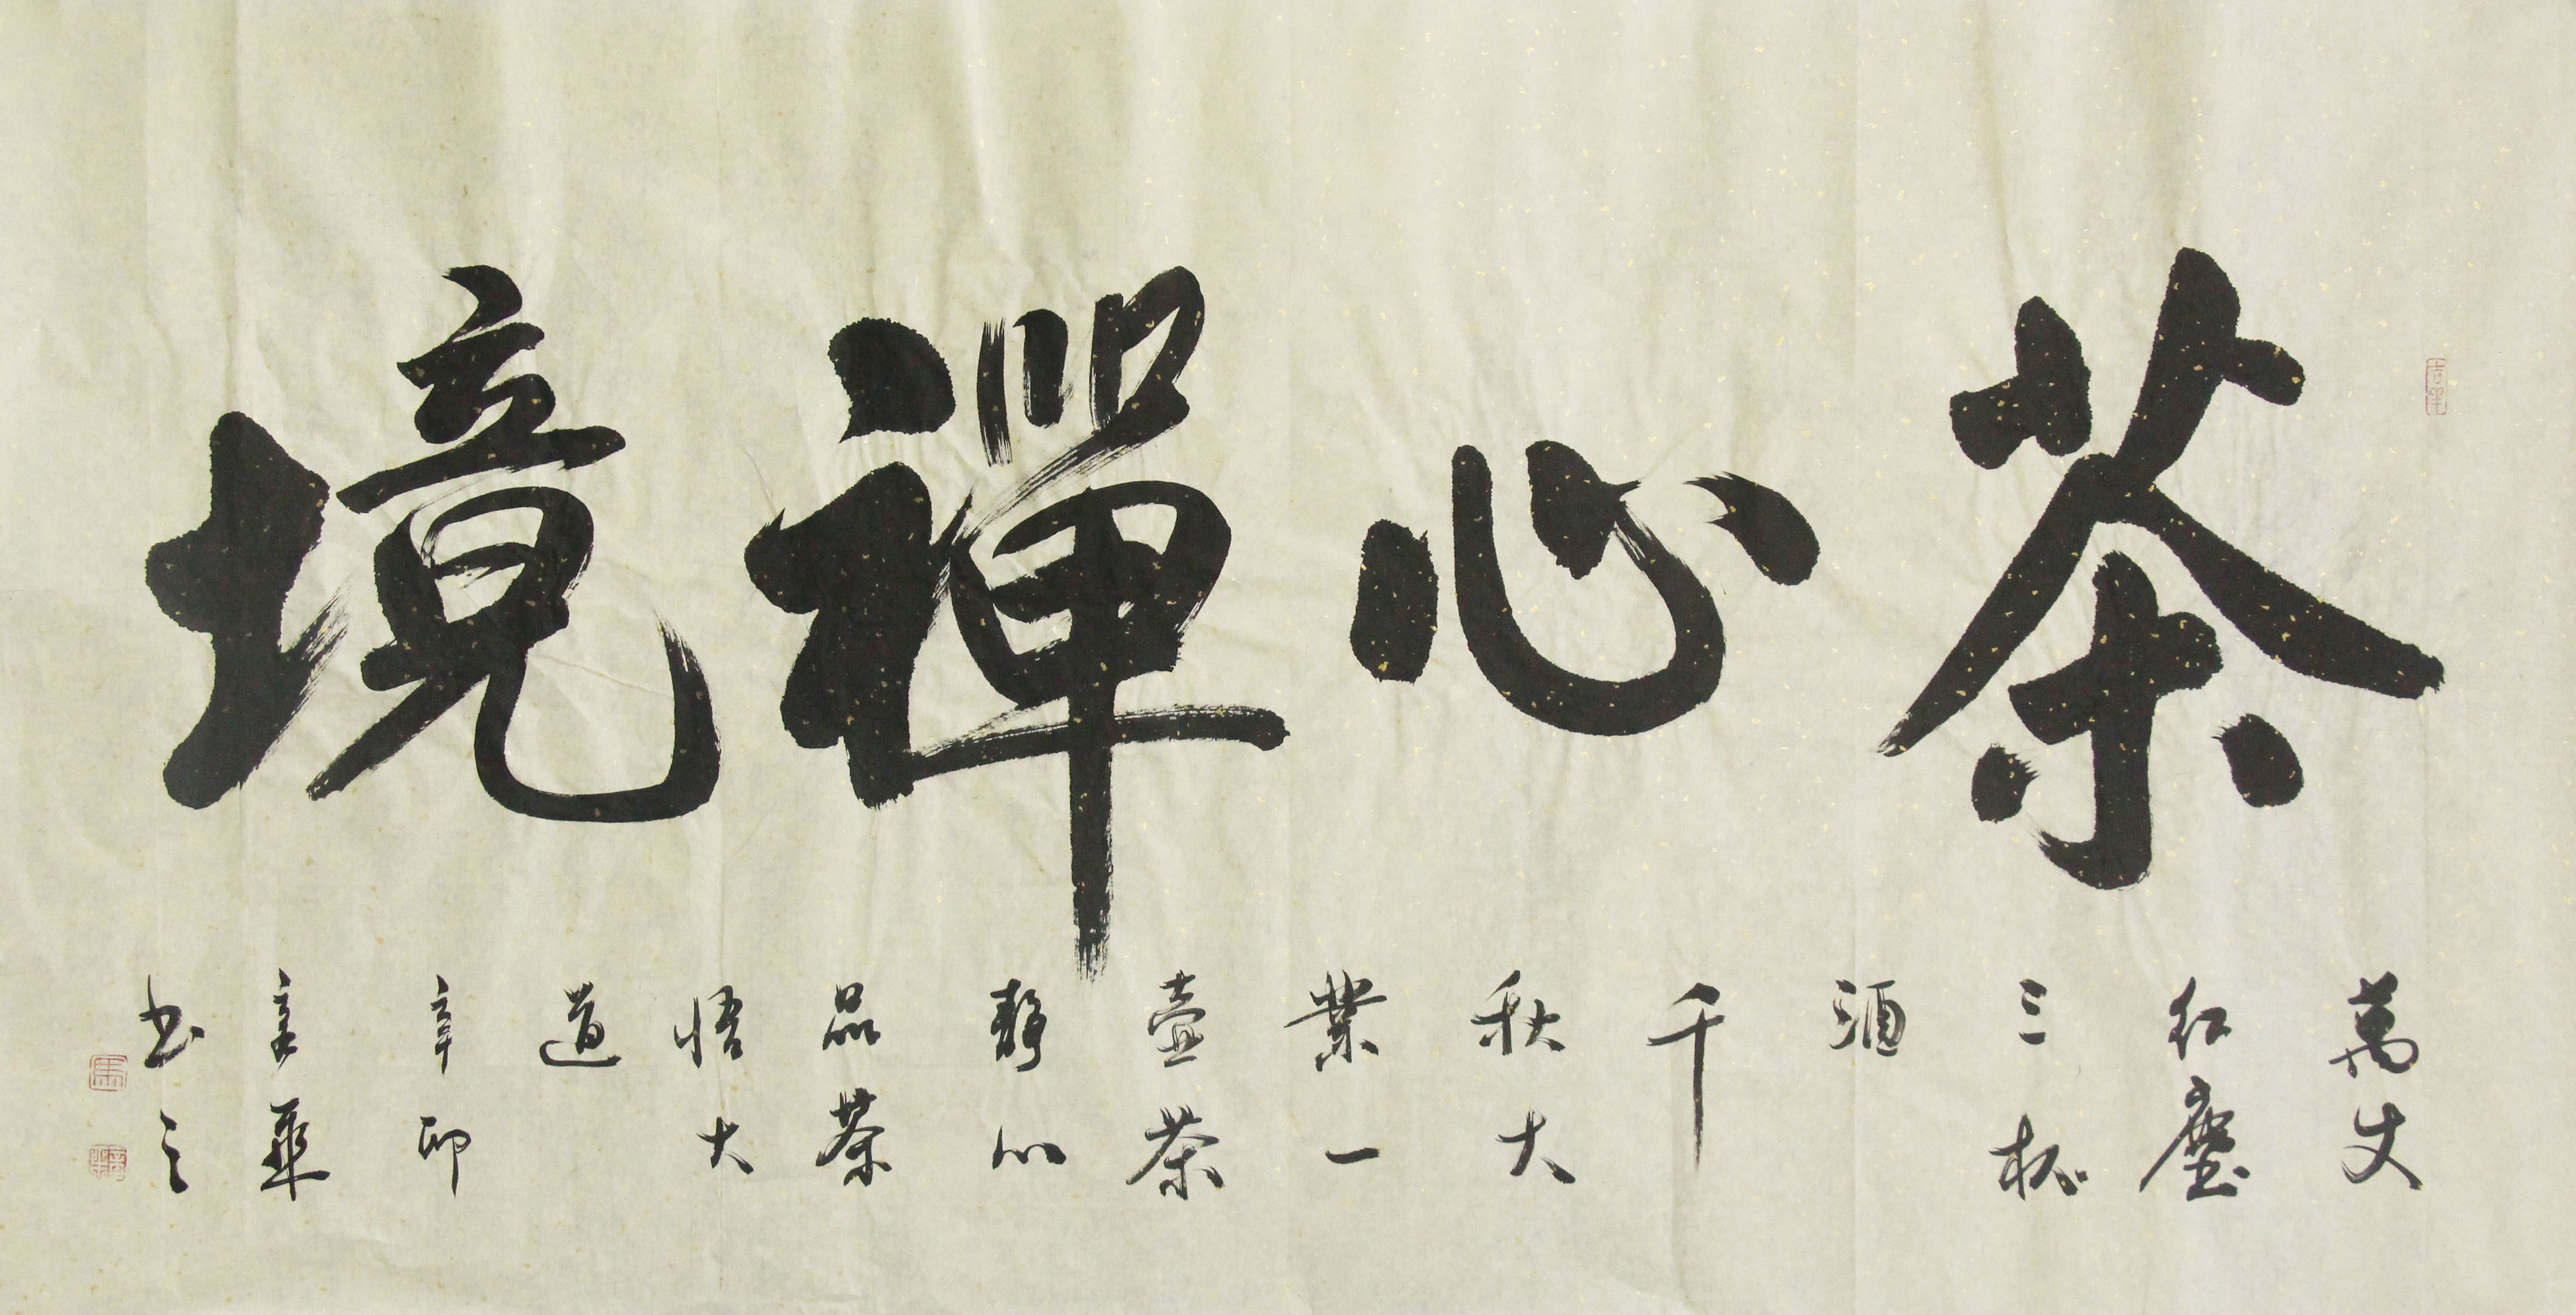 茶心禪境
萬丈
紅塵
三杯
酒
千
秋大
業一
壺茶
靜心
品茶
悟大
道
辛卯
書之